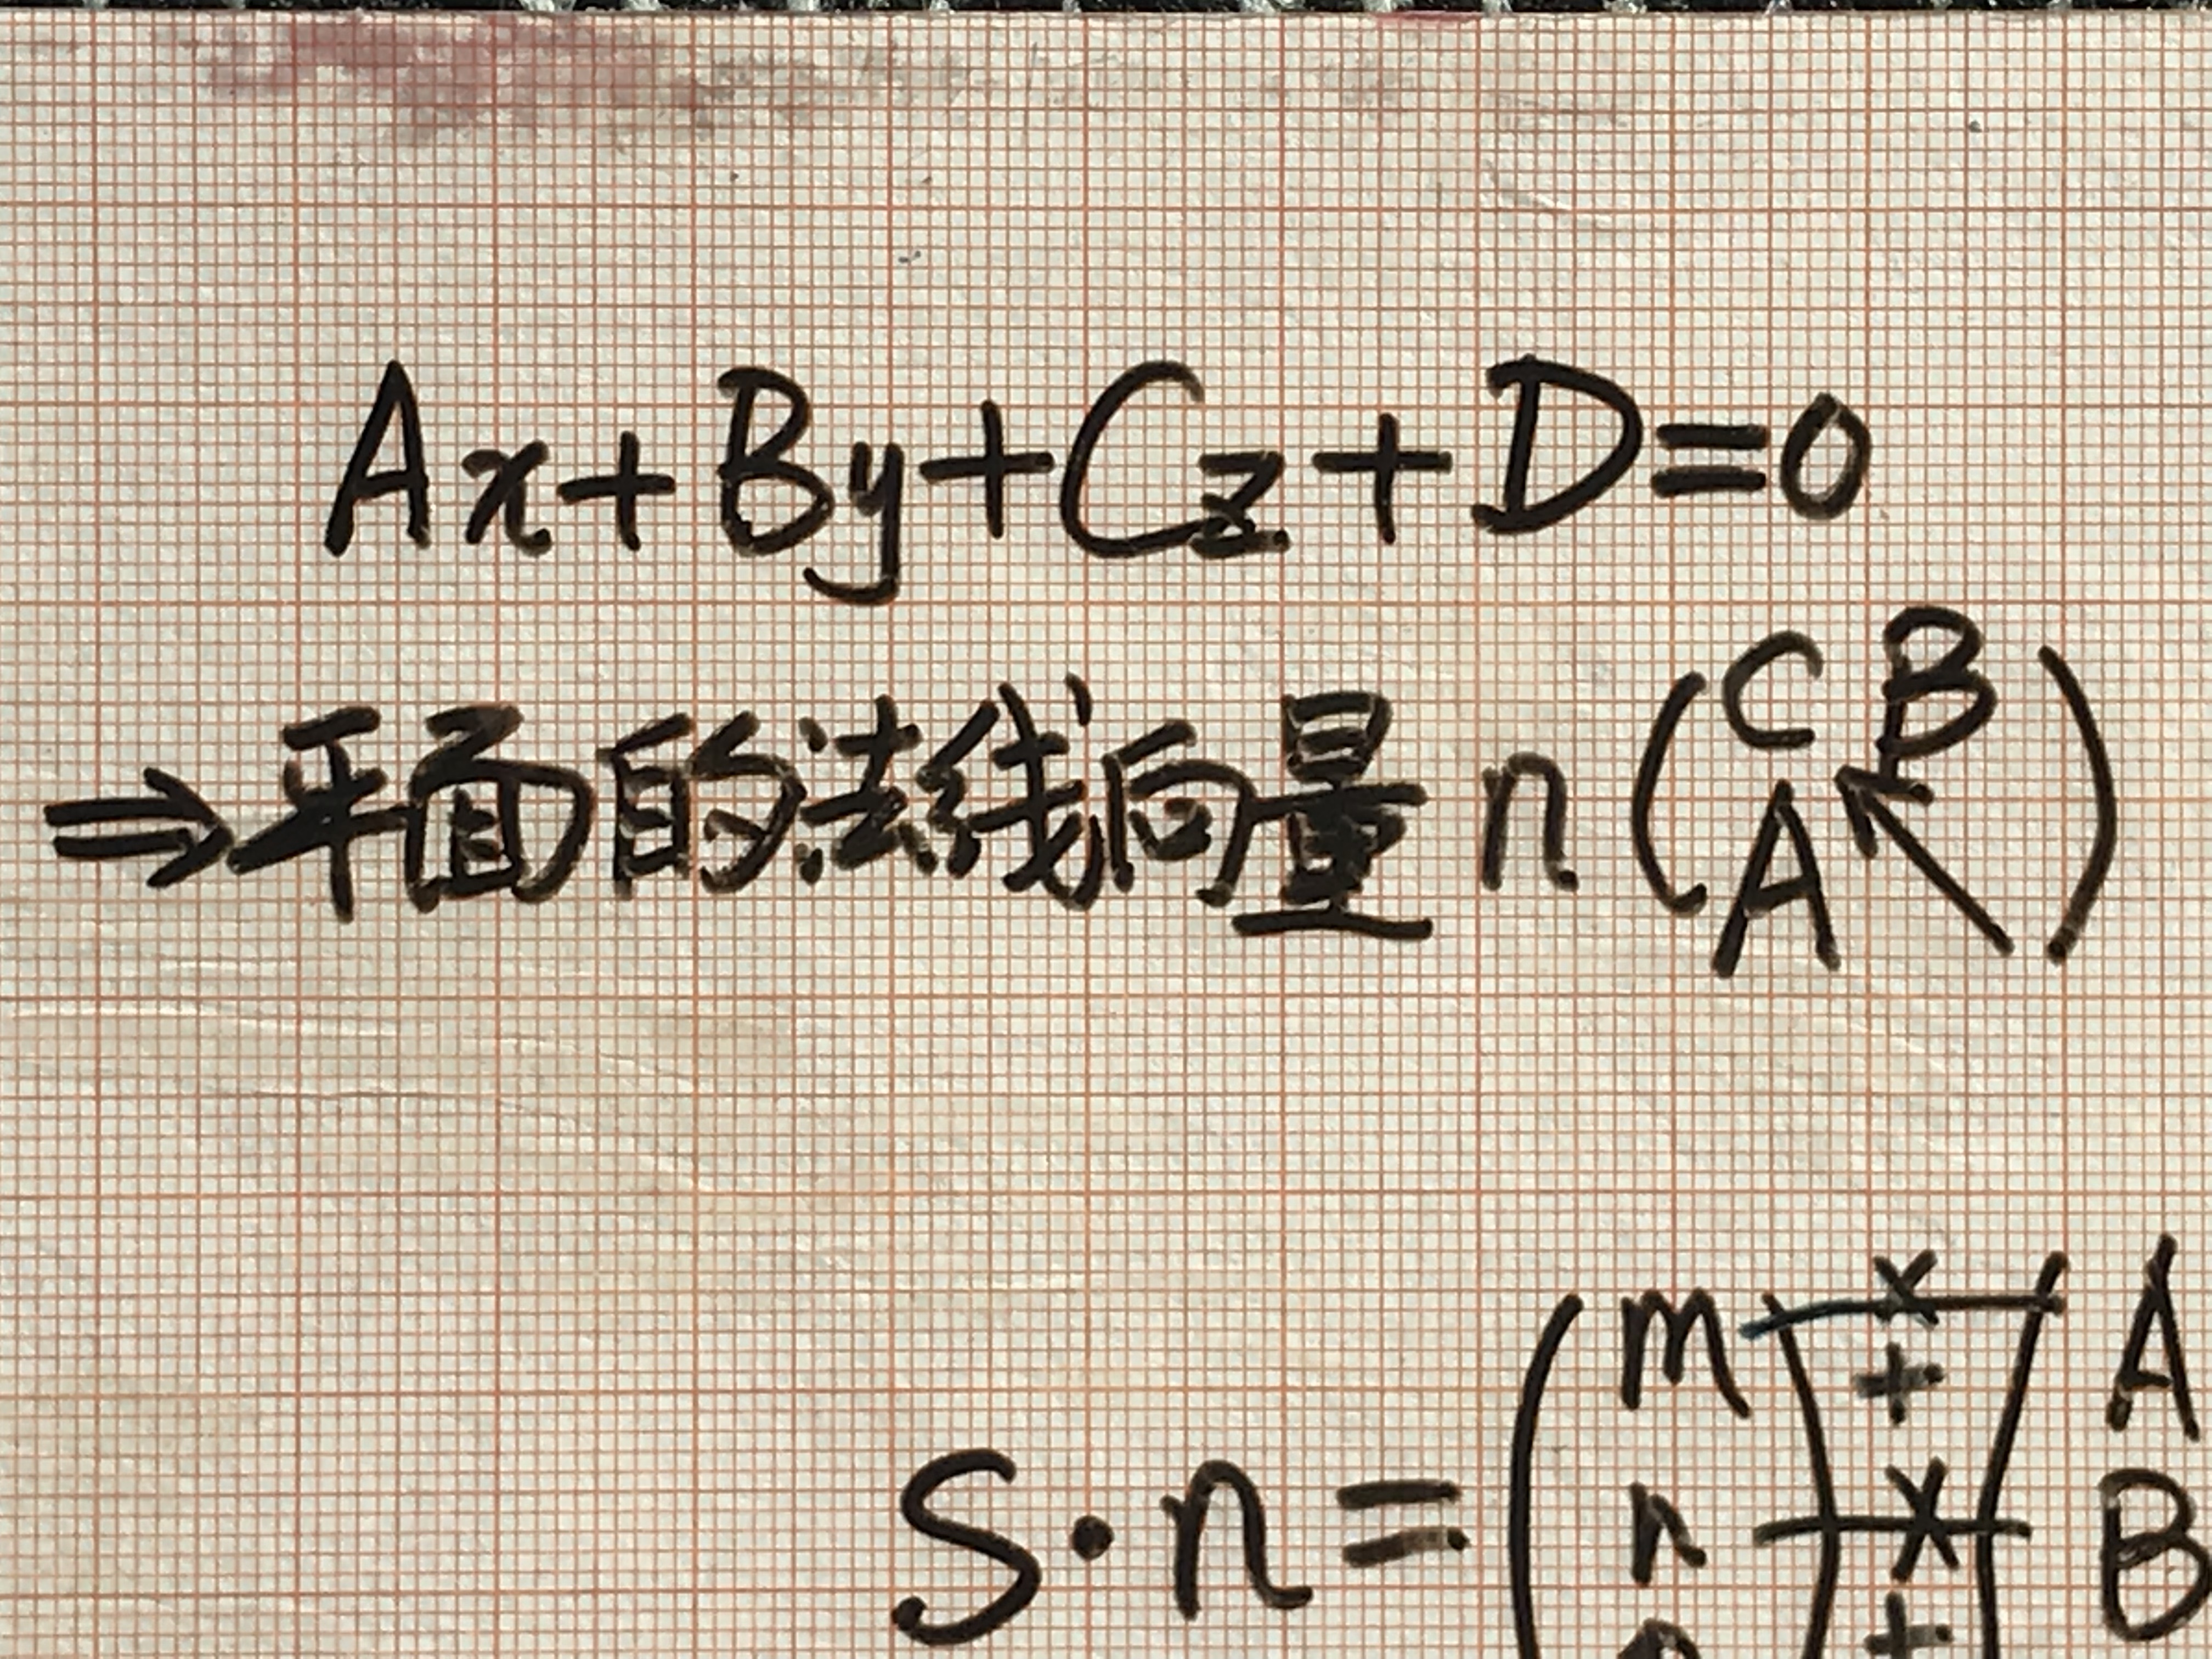 Ax+By+Cz+D=0
⇒平面的法线向量 n (C B A ↖)
S·n=(m × A
+
n × B
+